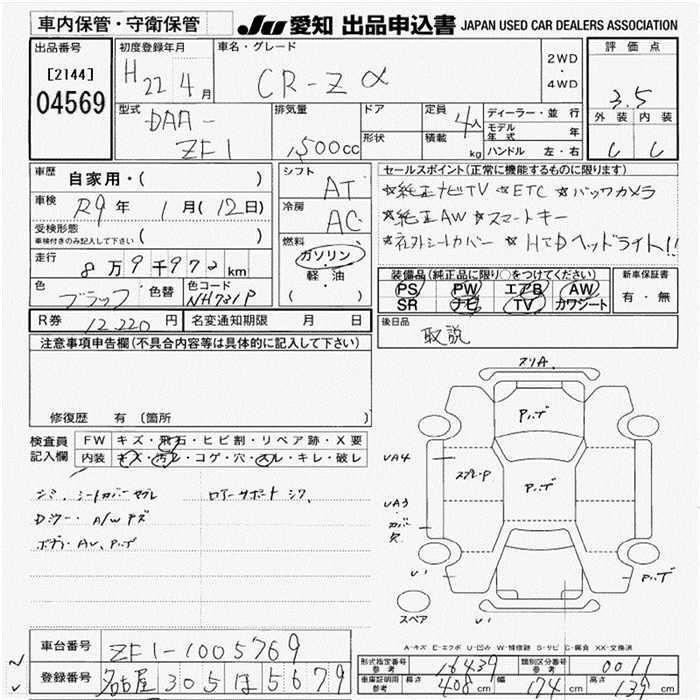 車内保管・守衛保管
JU 愛知 出品申込書 JAPAN USED CAR DEALERS ASSOCIATION
出品番号
[2144]
04569
初度登録年月
H22年4月
車名・グレード
CR-Z α
2WD
・
4WD
評価点
3.5
外装 内装
C C
型式
DAA-
ZF1
排気量
1,500cc
ドア
形状
定員
4人
積載
kg
ディーラー・並行
モデル年式 年
ハンドル 左・右
車歴 自家用・( )
車検 R9年 1月(12日)
受検形態
車検付きのみ記入して下さい ( )
走行 8万9千972km
色 ブラック 色替 色コード NH731P
シフト AT
冷房 AC
燃料
ガソリン
・
軽・油
( )
セールスポイント(正常に機能するものに限ります)
☆純正ナビTV ☆ETC ☆バックカメラ
☆純正AW ☆スマートキー
☆社外シートカバー ☆HIDヘッドライト!!
装備品(純正品に限り○をつけてください)
PS PW エアB AW
SR ナビ TV カワシート
新車保証書
有・無
R券 12,220円 名変通知期限 月 日
後日品
取説
注意事項申告欄(不具合内容等は具体的に記入して下さい)
修復歴 有(箇所 )
検査員
記入欄
FW キズ・飛石・ヒビ割・リペア跡・X要
内装 キズ・汚レ・コゲ・穴・スレ・キレ・破レ
シミ、シートカバー
A/W キズ
フリA.
UA4
UA3
カバー欠
スペア
A-キズ E-エクボ U-凹み W-補修跡 S-サビ C-腐食 XX-交換済
車台番号 ZF1-1005769
登録番号 名古屋 305 ほ 5679
形式指定番号 参考 16439 類別区分番号 参考 0011
車庫証明用 参考 長さ 408cm 幅 174cm 高さ 139cm